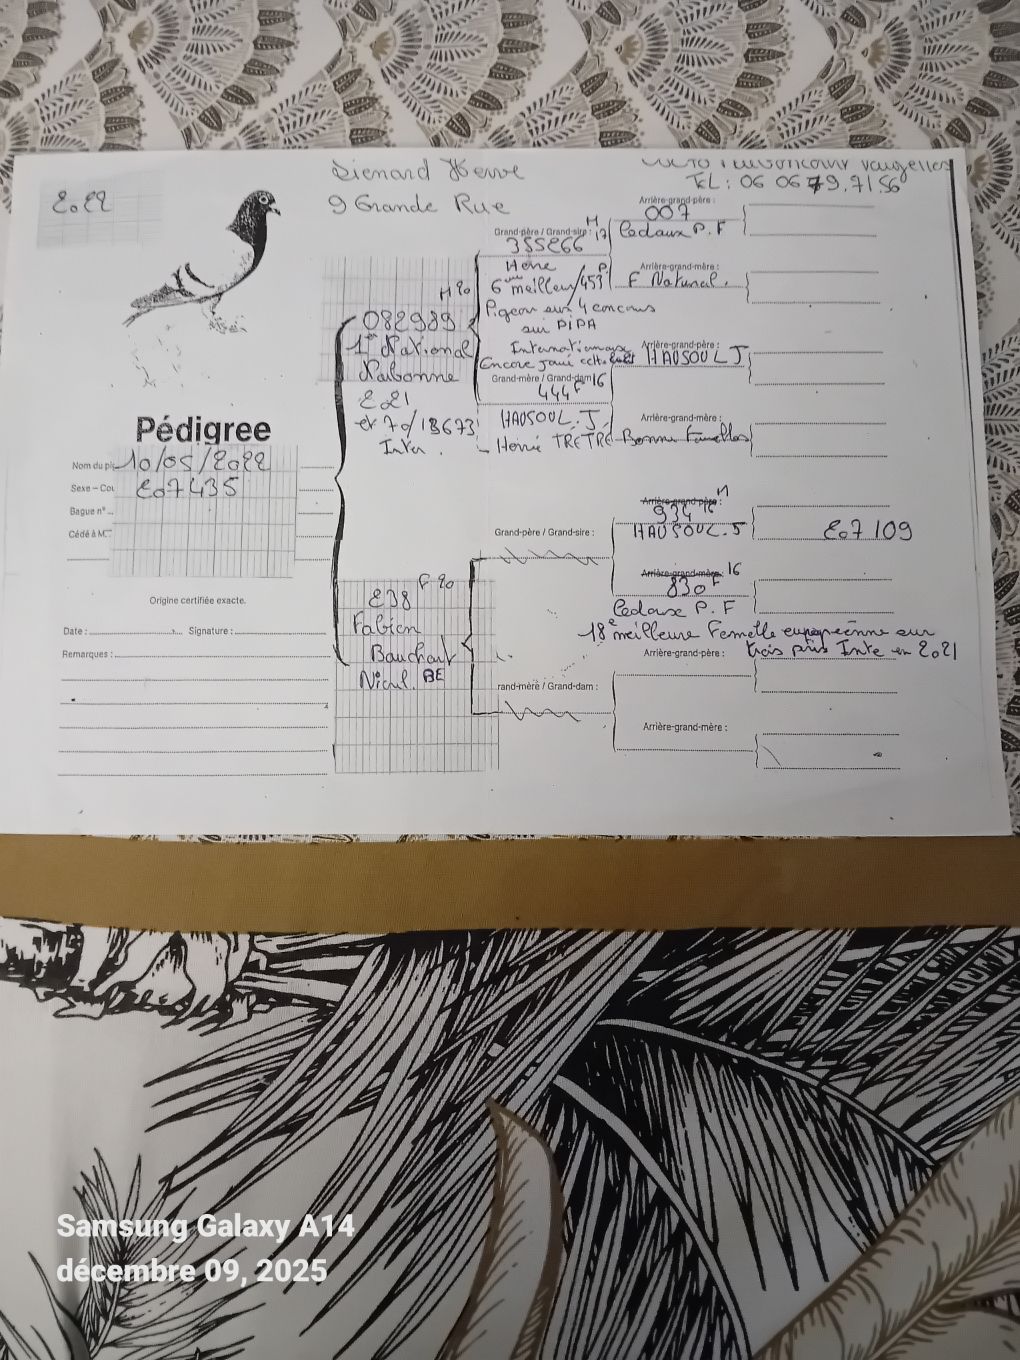 Herve
9 Grande Rue
TEL : 06 06 79.71 56
2022
Pédigree
Nom du
10/05/2022
Sexe – Cou
207435
Bague n° ...
Cédé à M.
Origine certifiée exacte.
Date : Signature :
Remarques :
M 20
082989
1er National
Narbonne
2021
et 70/13673
Inter.
F 20
238
Fabien
Nicul. BE
Grand-père / Grand-sire : M 17
355266
6ème meilleur/453 P
Pigeon sur 4 concours
sur PIPA
Internationaux
Encore joué
Grand-mère / Grand-dam 16
444 F
HAUSOUL. J.
Bonnes Femelles
Grand-père / Grand-sire :
rand-mère / Grand-dam :
Arrière-grand-père :
007
Cedaux P. F
Arrière-grand-mère :
F Natural.
Arrière-grand-père :
HAUSOUL J
Arrière-grand-mère :
Arrière-grand-père : M
934 16
HAUSOUL. J
207109
Arrière-grand-mère : 16
830 F
Cedaux P. F
18e meilleure Femelle européenne sur
trois prix Inte en 2021
Arrière-grand-père :
Arrière-grand-mère :
Samsung Galaxy A14
décembre 09, 2025